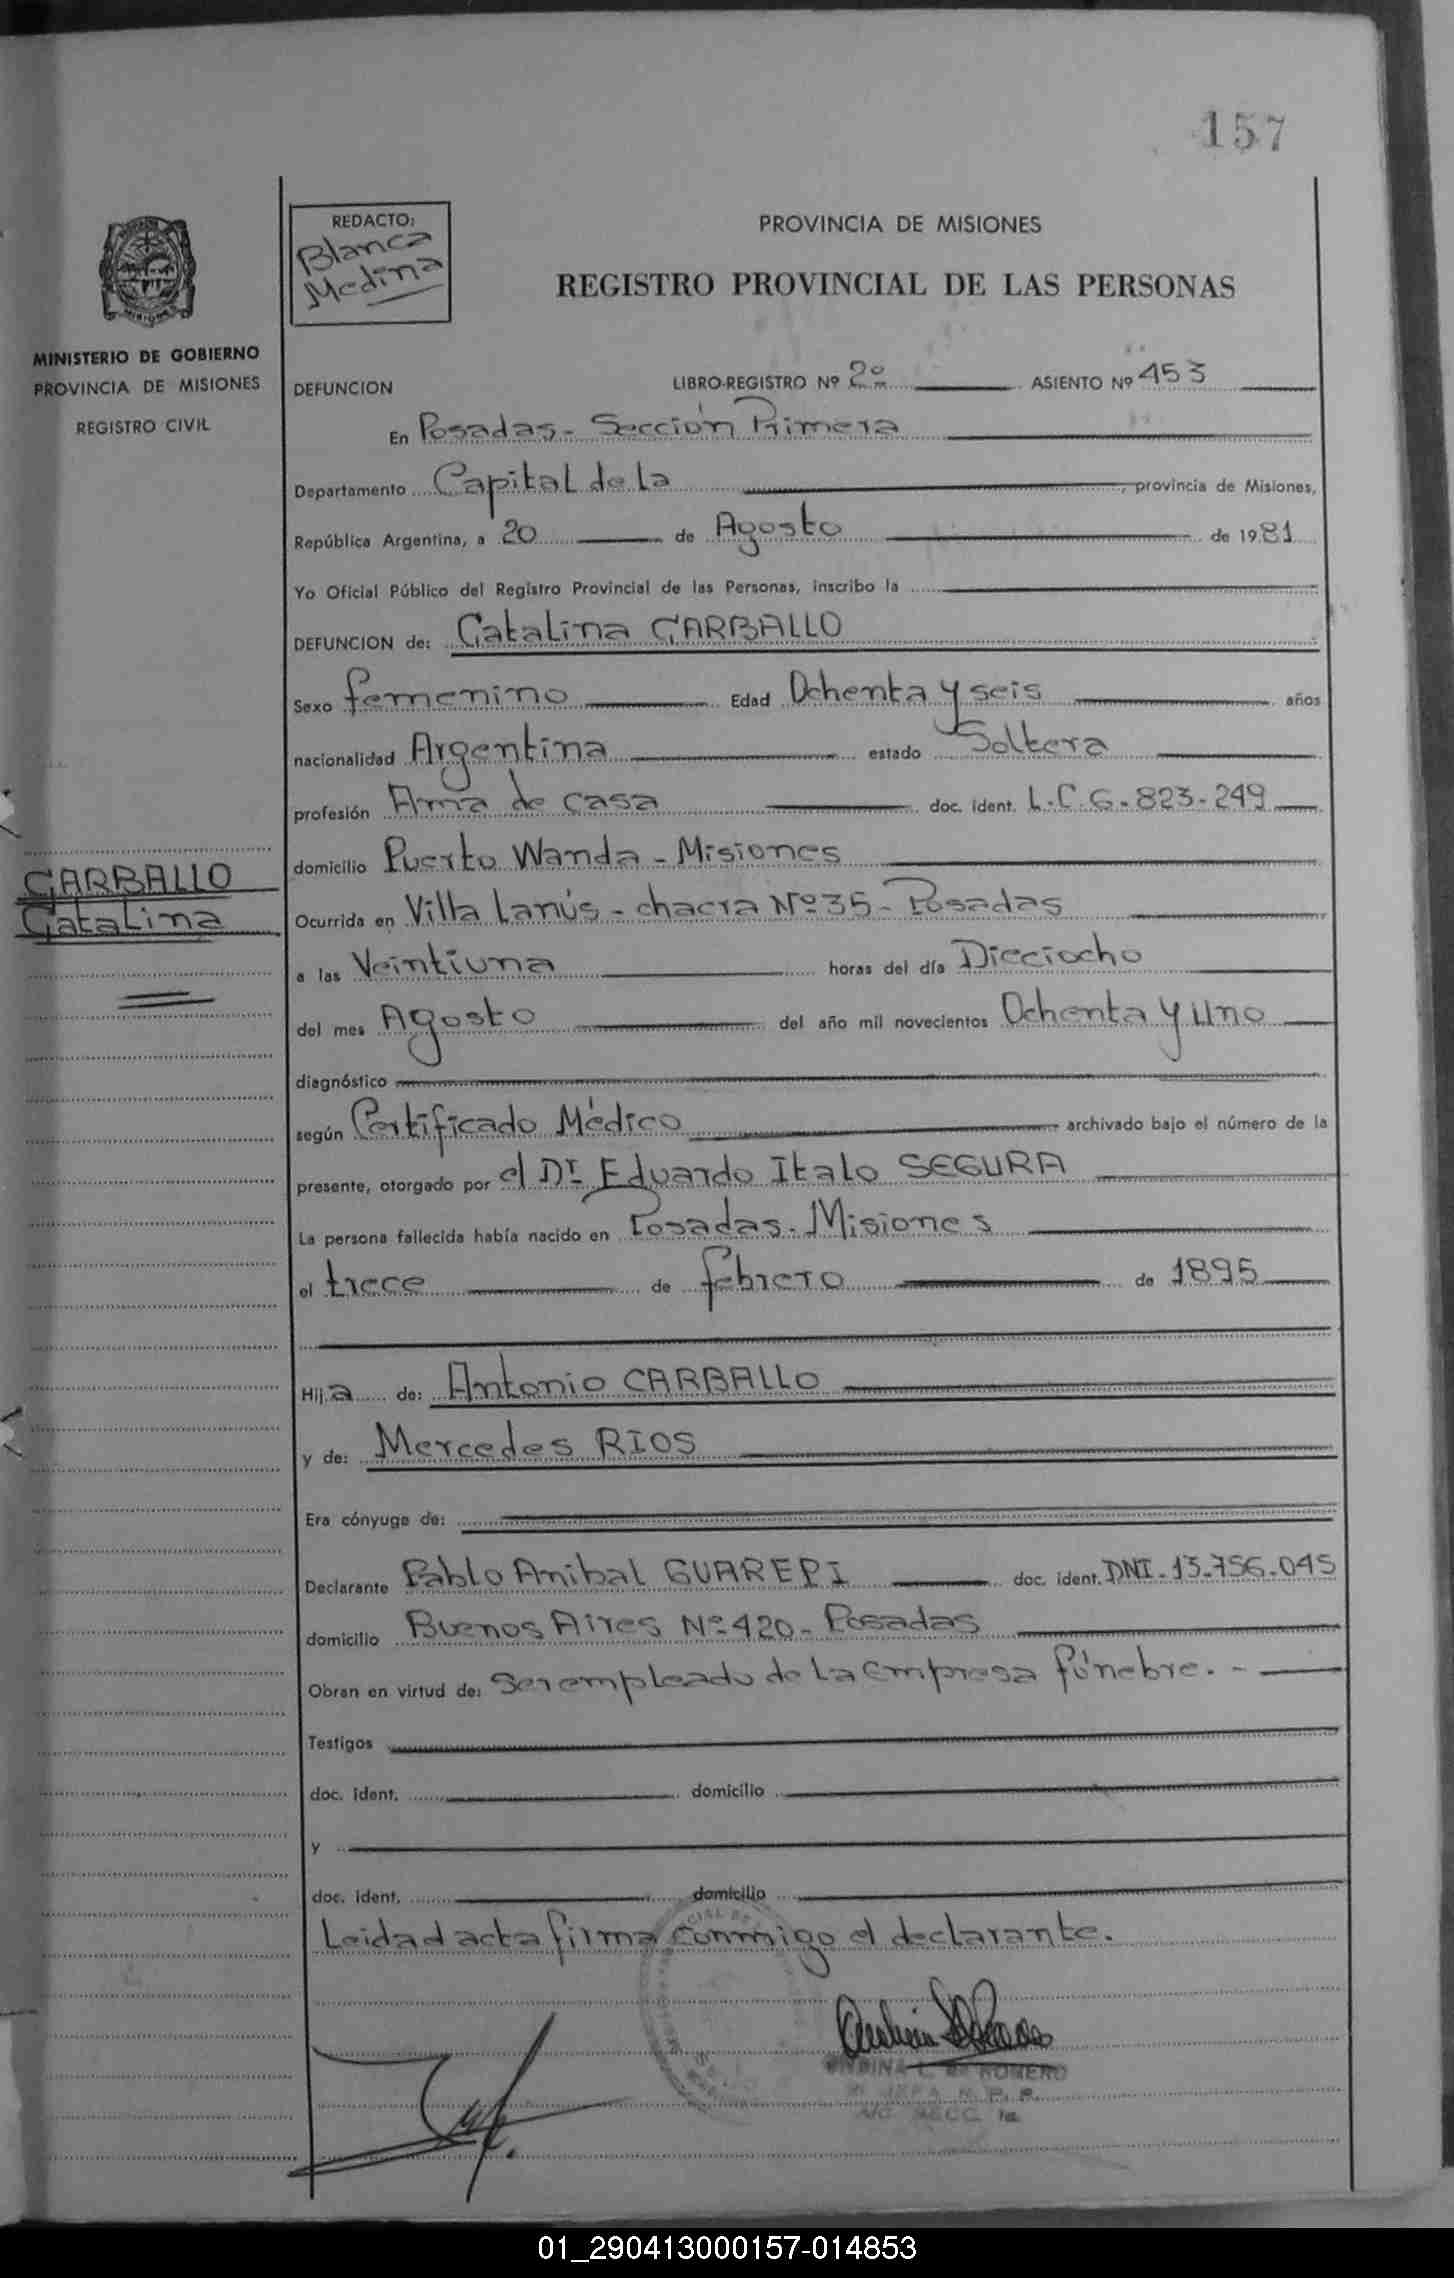 157
REDACTO:
Blanca
Medina
PROVINCIA DE MISIONES
REGISTRO PROVINCIAL DE LAS PERSONAS
MINISTERIO DE GOBIERNO
PROVINCIA DE MISIONES
REGISTRO CIVIL
DEFUNCION LIBRO-REGISTRO Nº 2º ASIENTO Nº 453
En Posadas - Sección Primera
Departamento Capital de la, provincia de Misiones,
República Argentina, a 20 de Agosto de 1981
Yo Oficial Público del Registro Provincial de las Personas, inscribo la
DEFUNCION de: Catalina CARBALLO
Sexo femenino Edad Ochenta y seis años
nacionalidad Argentina estado Soltera
profesión Ama de casa doc. ident. L.C 6.823.249
domicilio Puerto Wanda - Misiones
CARBALLO
Catalina
Ocurrida en Villa Lanús - chacra Nº 35 - Posadas
a las Veintiuna horas del día Dieciocho
del mes Agosto del año mil novecientos Ochenta y uno
diagnóstico
según Certificado Médico archivado bajo el número de la
presente, otorgado por el Dr Eduardo Italo SEGURA
La persona fallecida había nacido en Posadas - Misiones
el trece de febrero de 1895
Hija de: Antonio CARBALLO
y de: Mercedes RIOS
Era cónyuge de:
Declarante Pablo Anibal GUAREPI doc. ident. DNI. 13.756.045
domicilio Buenos Aires Nº 420 - Posadas
Obran en virtud de: Ser empleado de la empresa fúnebre. -
Testigos
doc. ident. domicilio
y
doc. ident. domicilio
Leida el acta firma conmigo el declarante.
ROMERO
01_290413000157-014853